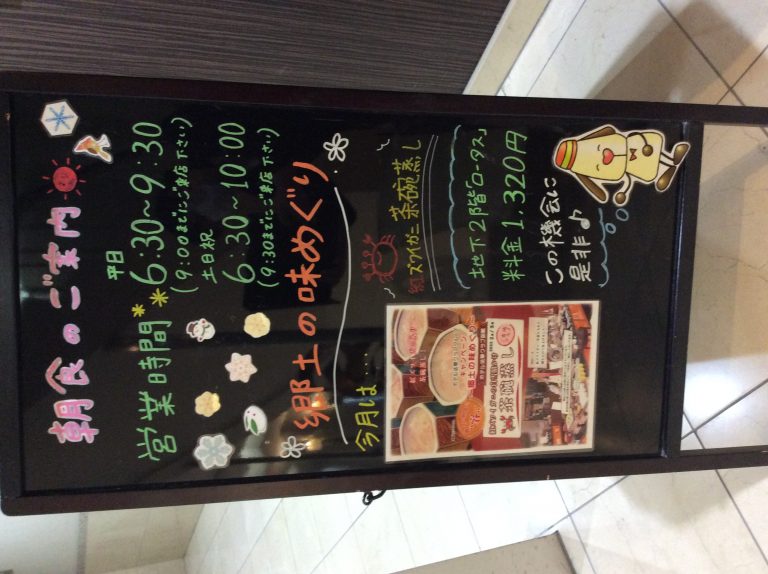 朝食のご案内
営業時間
平日
6:30〜9:30
(9:00までにご来店下さい)
土日祝
6:30〜10:00
(9:30までにご来店下さい)
郷土の味めぐり
今月は…
紅ズワイガニ茶碗蒸し
地下2階"ロータス"
料金 1,320円
この機会に
是非♪
郷土の味めぐり
キャンペーン
茶碗蒸し